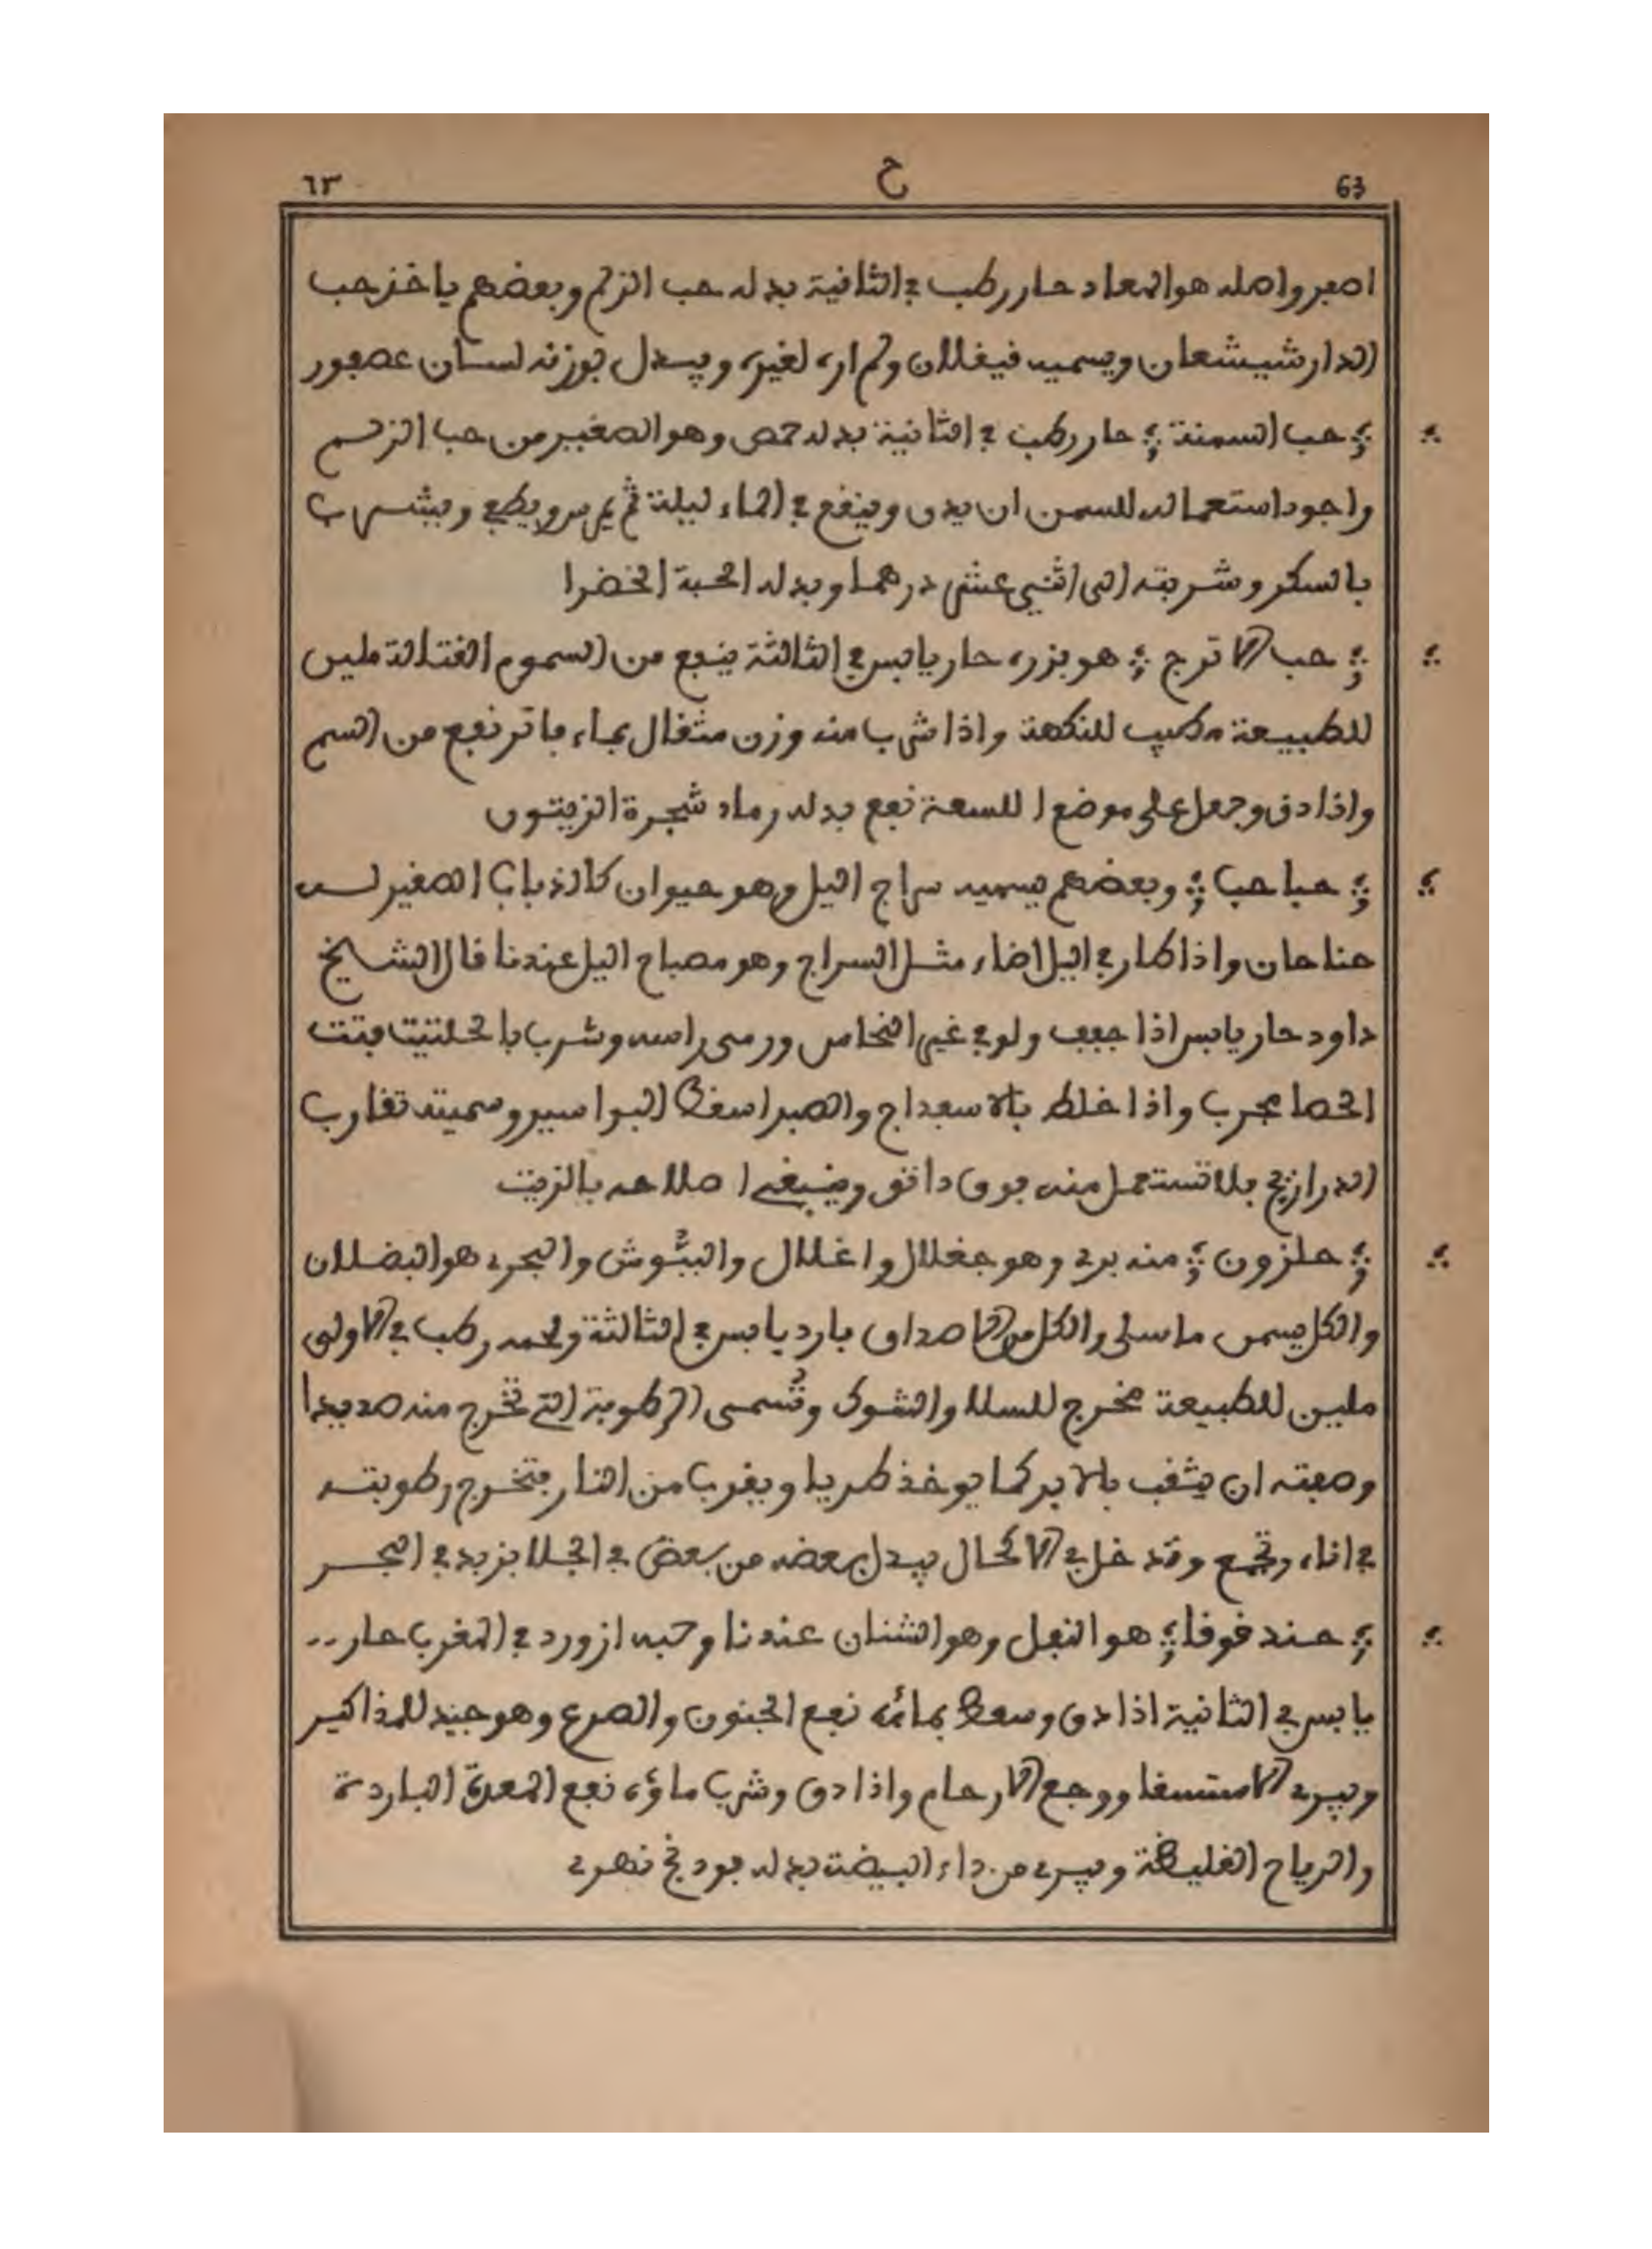 ٦٣ ح 63
اصفر واصله هو المعاد حار رطب في الثانية بدله حب الزلم وبعضهم ياخذ حب
الدار شيشعان ويسميه فيغلان ولم اره لغيره ويبدل بوزنه لسان عصفور
حب السمنة حار رطب في الثانية بدله حمص وهو الصغير من حب الزلم
واجود استعماله للسمن ان يدق وينقع في الماء ليلة ثم يمرس ويطبخ ويشرب
بالسكر وشربته الى اثني عشر درهما وبدله الحبة الخضرا
حب الاترج هو بزره حار يابس في الثالثة ينفع من السموم القتالة ملين
للطبيعة مطيب للنكهة واذا شرب منه وزن مثقال بماء فاتر نفع من السم
واذا دق وجعل على موضع اللسعة نفع بدله رماد شجرة الزيتون
حباحب وبعضهم يسميه سراج اليل وهو حيوان كالذباب الصغير له
جناحان واذا طار في اليل اضاء مثل السراج وهو مصباح اليل عندنا قال الشيخ
داود حار يابس اذا جفف ولو في غير النحاس ورمى راسه وشرب بالحلتيت فتت
الحصا مجرب واذا خلط بالاسفداج والصبر اسقط البواسير وسميته تقارب
الدراريح فلا تستعمل منه فوق دانق وينبغي اصلاحه بالزيت
حلزون منه بري وهو جغلال واغلال والببوش والبحري هو البضلان
والكل يسمى ماسلى والكل من الاصداف بارد يابس في الثالثة ولحمه رطب في الاولى
ملين للطبيعة مخرج للسلا والشوك وتسمى الرطوبة التي تخرج منه صديدا
وصفته ان يثقب بالابر كما يوخذ طريا ويقرب من النار فتخرج رطوبته
في اناء وتجمع وتدخل في الاكحال يبدل بعضه من بعض في الجلا بزبد في البحر
حندقوقا هو النفل وهو الشنان عندنا وحبه ازورد في المغرب حار
يابس في الثانية اذا دق وسعط بمائه نفع الجنون والصرع وهو جيد للمذاكير
ويبري الاستسقا ووجع الارحام واذا دق وشرب ماؤه نفع المعدة الباردة
والرياح الغليظة ويبري من داء البيضة بدله فودنج نهري